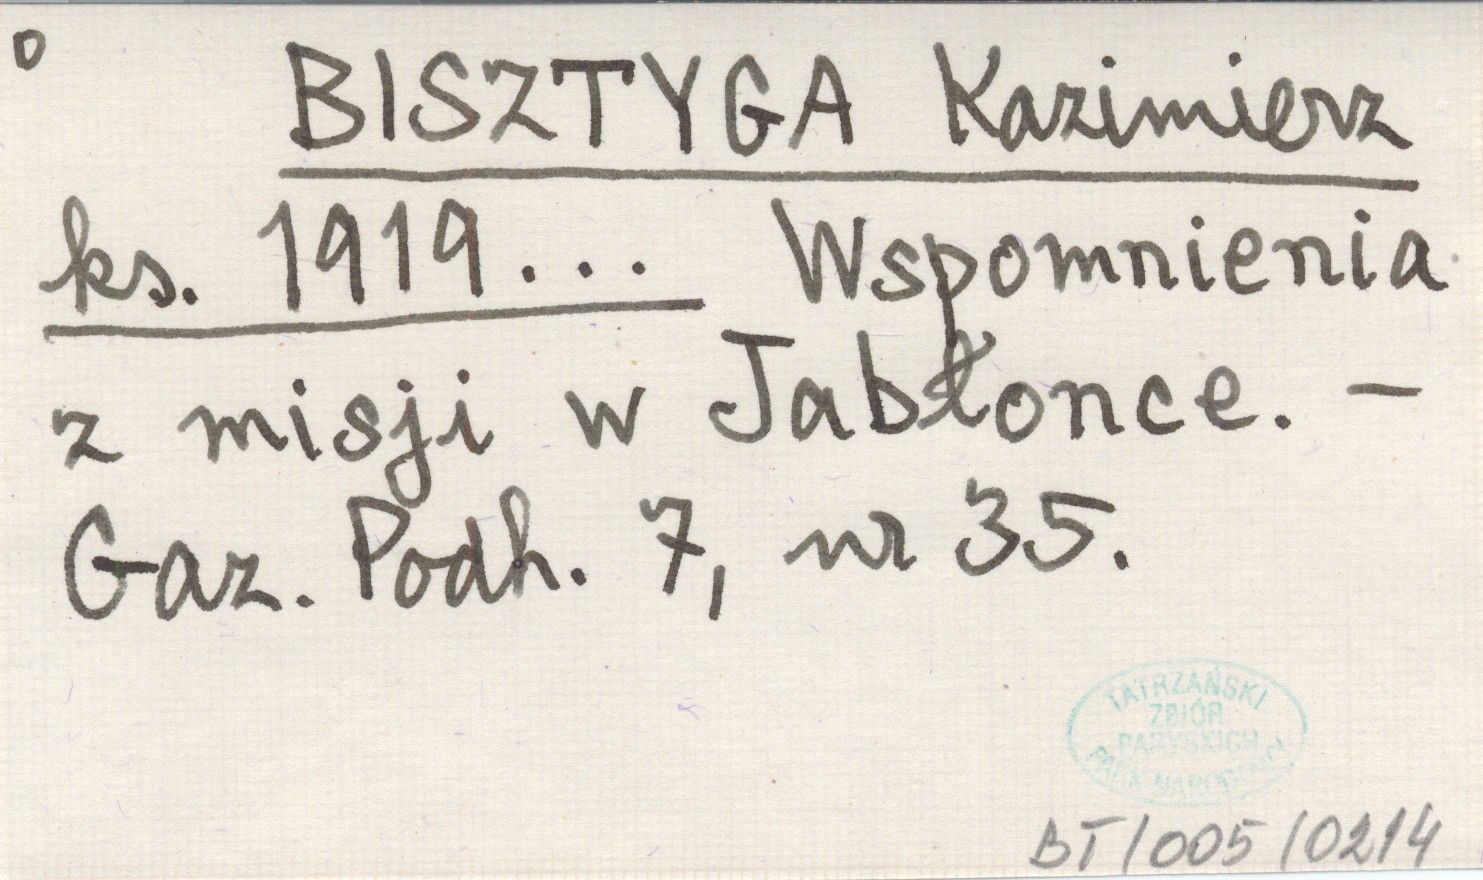 o
BISZTYGA Kazimierz
ks. 1919... Wspomnienia
z misji w Jabłonce. -
Gaz. Podh. 7, nr 35.
TATRZAŃSKI
ZBIÓR
PARYSKICH
PARK NARODOWY
BT/005/0214